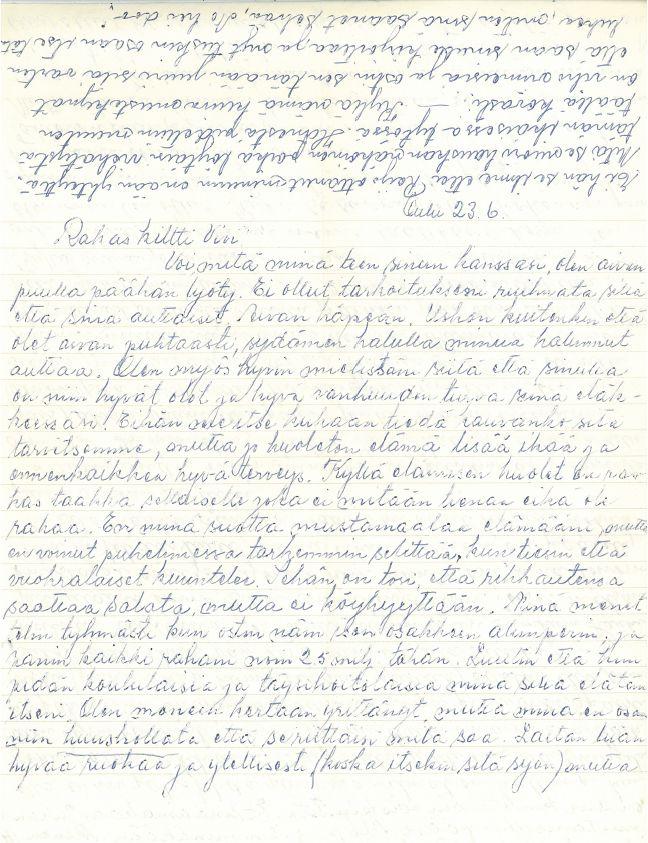 Oulu 23.6.
Rakas kiltti Vivi
Voi mitä minä teen sinun kanssasi, olen aivan
puulla päähän lyöty. Ei ollut tarkoitukseni ruikuttaa sitä
että sinä auttaisit. Aivan häpeän. Uskon kuitenkin että
olet aivan puhtaasti, sydämen halulla minua halunnut
auttaa. Olen myös hyvin mielissäni siitä että sinulla
on niin hyvät olot ja hyvä vanhuuden turva sinä eläk-
keessäsi. Eihän me itse kukaan tiedä kauvanko sitä
tarvitsemme, mutta jo huoleton elämä lisää ikää ja
ennenkaikkea hyvä terveys. Kyllä elämisen huolet on ras-
kas taakka sellaiselle joka ei mitään tienaa eikä ole
rahaa. En minä suotta mustamaalaa elämääni, mutta
en voinut puhelimessa tarkemmin selittää, kun tiesin että
vuokralaiset kuuntelee. Sehän on tosi, että rikkautensa
saattaa salata, mutta ei köyhyyttään. Minä menet-
telin tyhmästi kun ostin näin ison osakkeen alunperin, ja
panin kaikki rahani noin 25 milj. tähän. Luulin että kun
pidän koululaisia ja täysihoitolaisia minä sillä elätän
itseni. Olen moneen kertaan yrittänyt, mutta minä en osaa
niin huushollata että se riittäisi mitä saa. Laitan liian
hyvää ruokaa ja ylellisesti (koska itsekin sitä syön) mutta
Ei hän se ihme ellei Reijo ottanut minuun enään yhteyttä.
tämän
täältä kovasti. — Kyllä nämä
on niin
että saan sinulle kirjoittaa ja nyt tuskin osaan itse
lukea, miten sinä saanet selvää, älä hei doo!